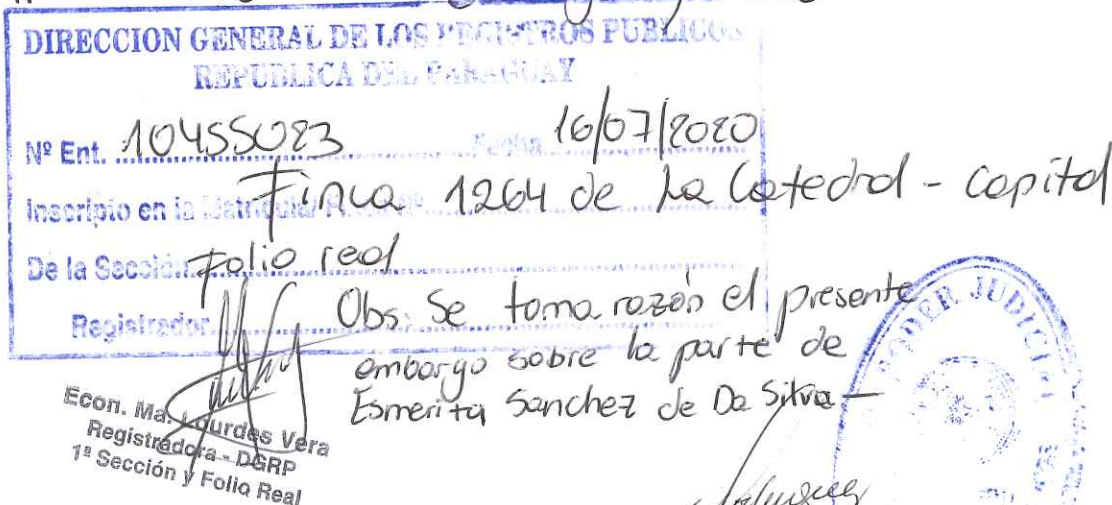 DIRECCION GENERAL DE LOS REGISTROS PUBLICOS
REPUBLICA DEL PARAGUAY
Nº Ent. 10455023 Fecha 16/07/2020
Inscripto en la Matricula Finca 1264 de La Catedral - Capital
De la Sección Folio real
Registrador Obs: Se toma razón el presente
embargo sobre la parte de
Esmerita Sanchez de Da Silva —
Econ. Ma. Lourdes Vera
Registradora - DGRP
1ª Sección y Folio Real
PODER JUDICIAL